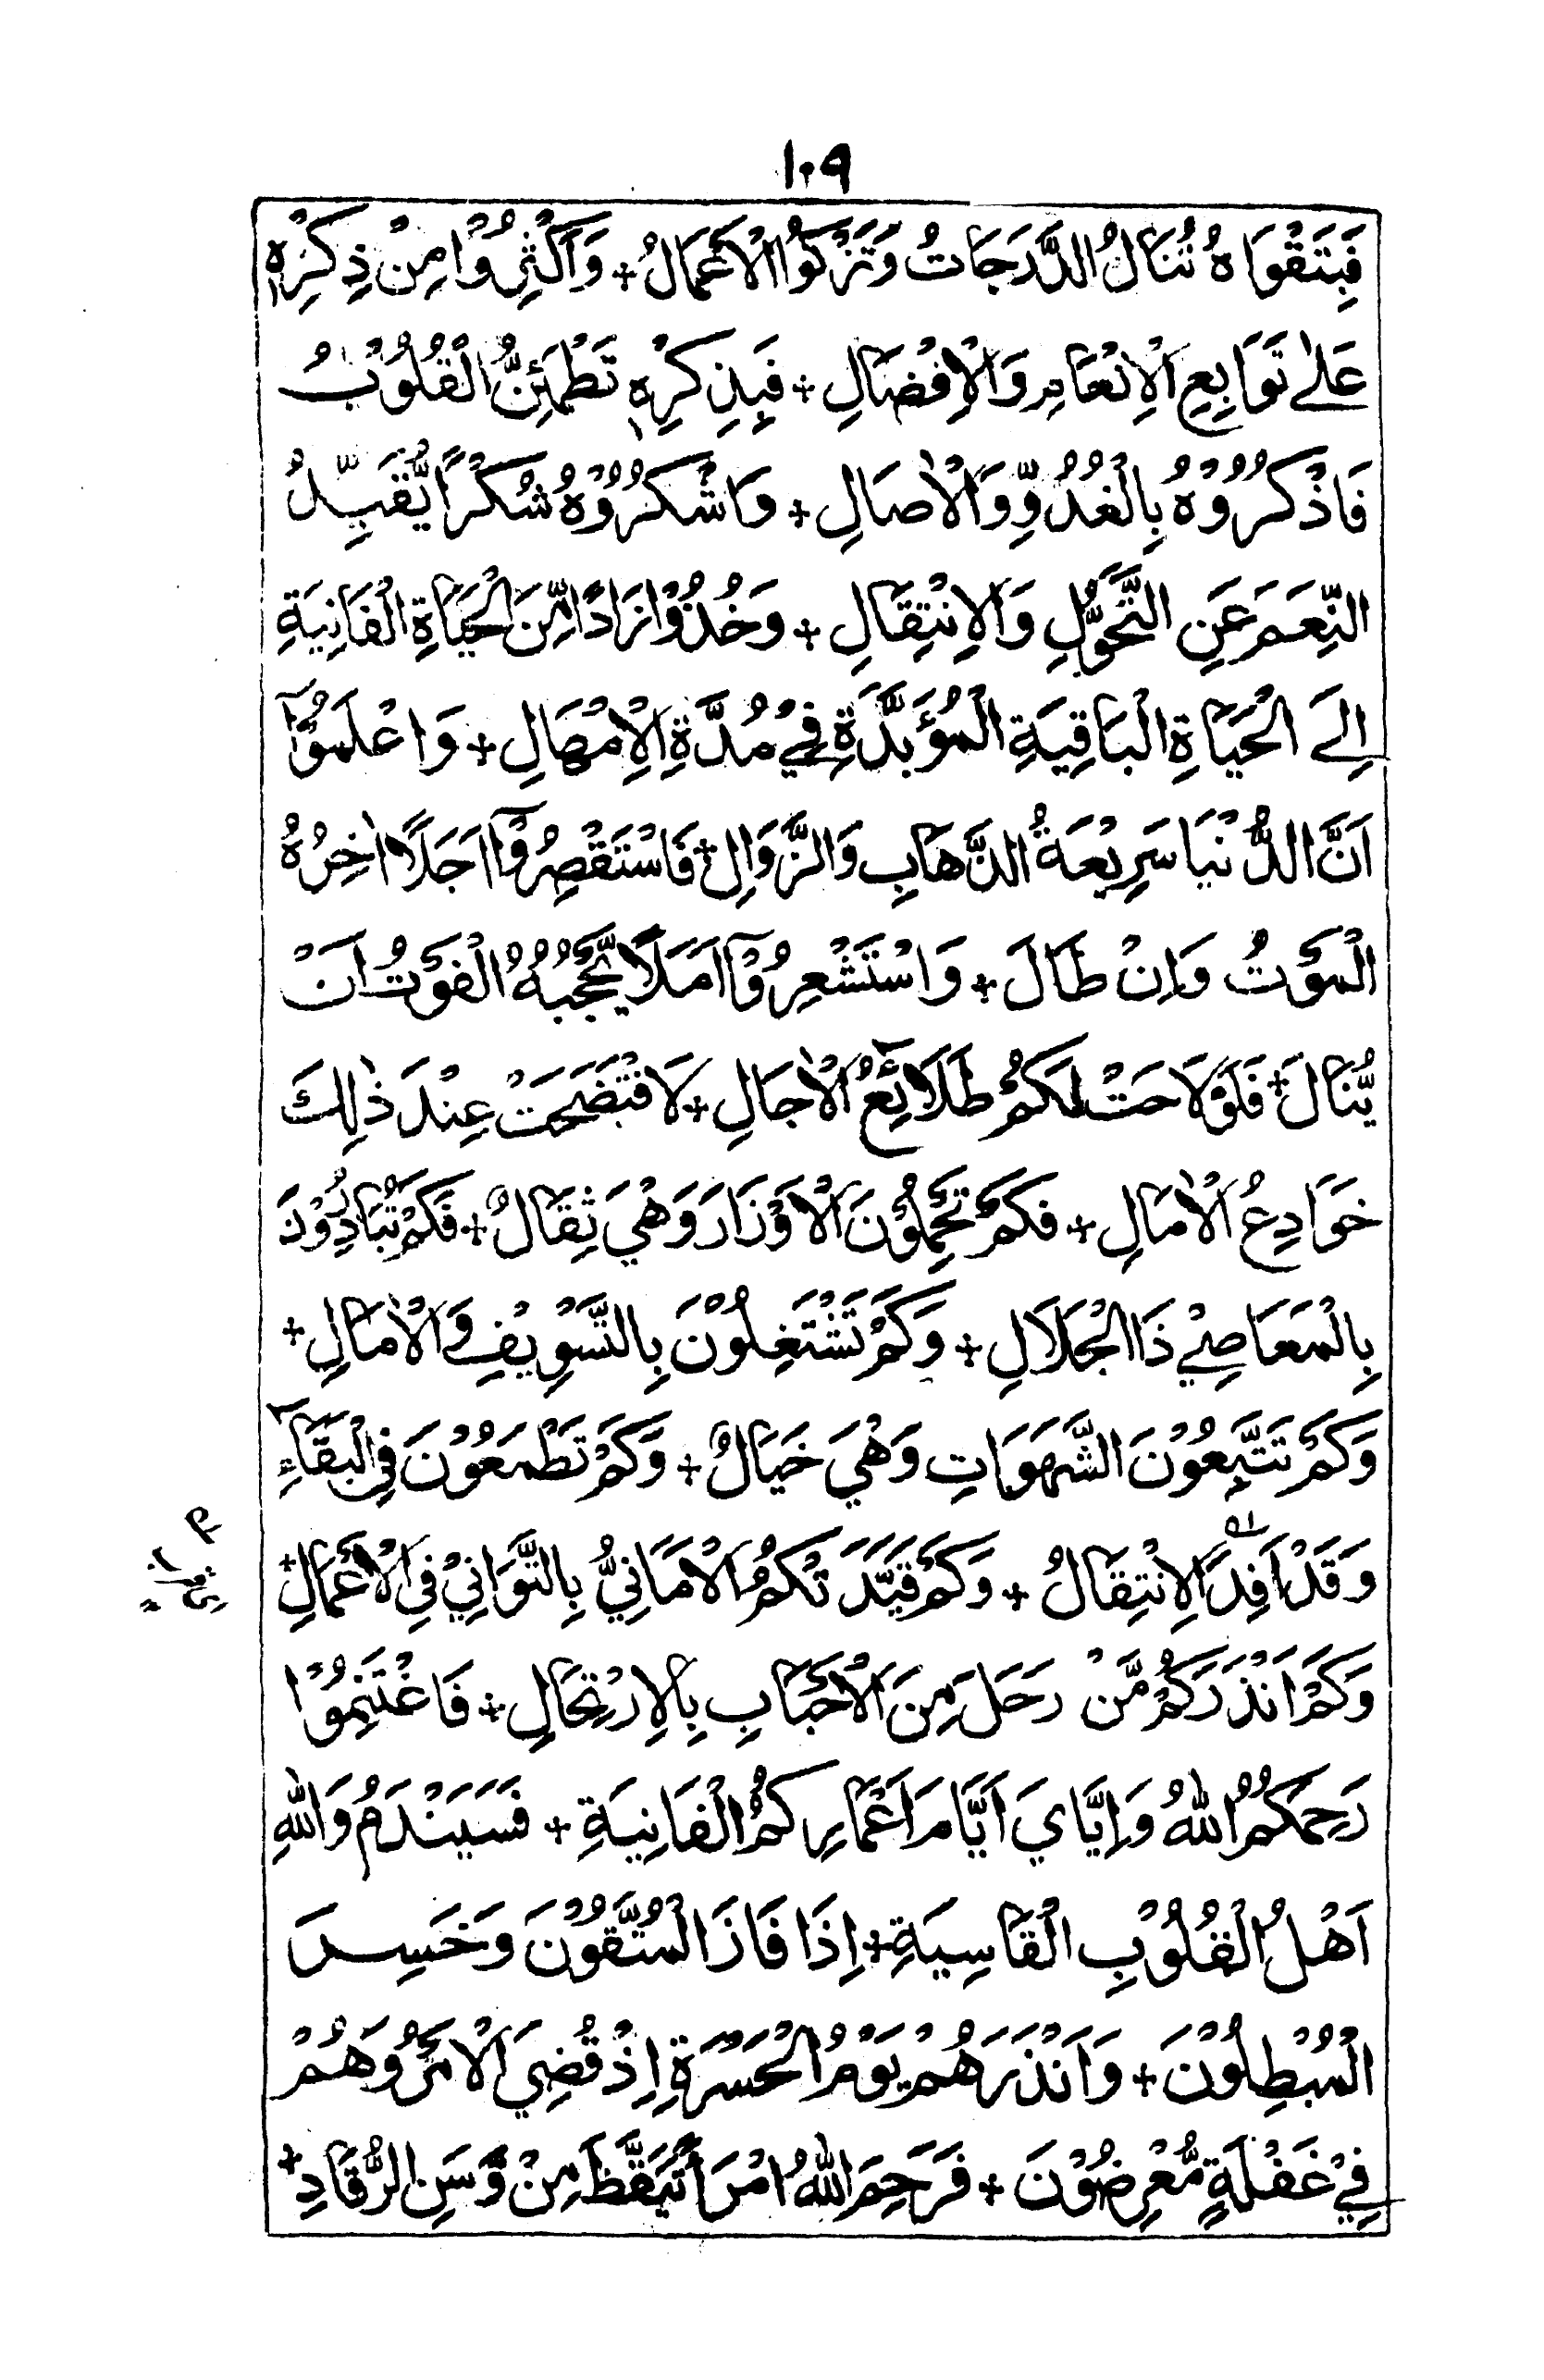 ١٠٩
فَبِتَقْوَاهُ تُنَالُ الدَّرَجَاتُ وَتَزْكُوا الْاَعْمَالُ + وَاَكْثِرُوْا مِنْ ذِكْرِهٖ
عَلٰى تَوَابِعِ الْاِنْعَامِ وَالْاِفْضَالِ + فَبِذِكْرِهٖ تَطْمَئِنُّ الْقُلُوْبُ
فَاذْكُرُوْهُ بِالْغُدُوِّ وَالْاٰصَالِ + وَاشْكُرُوْهُ شُكْرًا يُّقَيِّدُ
النِّعَمَ عَنِ التَّحَوُّلِ وَالْاِنْتِقَالِ + وَخُذُوْا زَادًا مِّنَ الْحَيَاةِ الْفَانِيَةِ
اِلَى الْحَيَاةِ الْبَاقِيَةِ الْمُؤَبَّدَةِ فِيْ مُدَّةِ الْاِمْهَالِ + وَاعْلَمُوْٓا
اَنَّ الدُّنْيَا سَرِيْعَةُ الذَّهَابِ وَالزَّوَالِ + فَاسْتَقْصِرُوْٓا اَجَلًا اٰخِرُهُ
الْمَوْتُ وَاِنْ طَالَ + وَاسْتَشْعِرُوْٓا اَمَلًا يَّحْجُبُهُ الْفَوْتُ اَنْ
يُّنَالَ + فَلَوْ لَاحَتْ لَكُمْ طَلَآئِعُ الْاٰجَالِ + لَافْتَضَحَتْ عِنْدَ ذٰلِكَ
خَوَادِعُ الْاٰمَالِ + فَكَمْ تَحْمِلُوْنَ الْاَوْزَارَ وَهْيَ ثِقَالٌ + فَكَمْ تُبَادِرُوْنَ
بِالْمَعَاصِيْ ذَا الْجَلَالِ + وَكَمْ تَشْتَغِلُوْنَ بِالتَّسْوِيْفِ وَالْاٰمَالِ +
وَكَمْ تَتَّبِعُوْنَ الشَّهَوَاتِ وَهْيَ خَيَالٌ + وَكَمْ تَطْمَعُوْنَ فِي الْبَقَآءِ
وَقَدْ اَفِدَ الْاِنْتِقَالُ + وَكَمْ قَيَّدَتْكُمُ الْاَمَانِيُّ بِالتَّوَانِيْ فِي الْاَعْمَالِ +
وَكَمْ اَنْذَرَكُمْ مَّنْ رَحَلَ مِنَ الْاَحْبَابِ بِالْاِرْتِحَالِ + فَاغْتَنِمُوْا
رَحِمَكُمُ اللّٰهُ وَاِيَّايَ اَيَّامَ اَعْمَارِكُمُ الْفَانِيَةِ + فَسَيَنْدَمُ وَاللّٰهِ
اَهْلُ الْقُلُوْبِ الْقَاسِيَةِ + اِذَا فَازَ الْمُتَّقُوْنَ وَخَسِرَ
الْمُبْطِلُوْنَ + وَاَنْذَرَهُمْ يَوْمُ الْحَسْرَةِ اِذْ قُضِيَ الْاَمْرُ وَهُمْ
فِيْ غَفْلَةٍ مُّعْرِضُوْنَ + فَرَحِمَ اللّٰهُ امْرَأً تَيَقَّظَ مِنْ وَّسَنِ الرُّقَادِ +